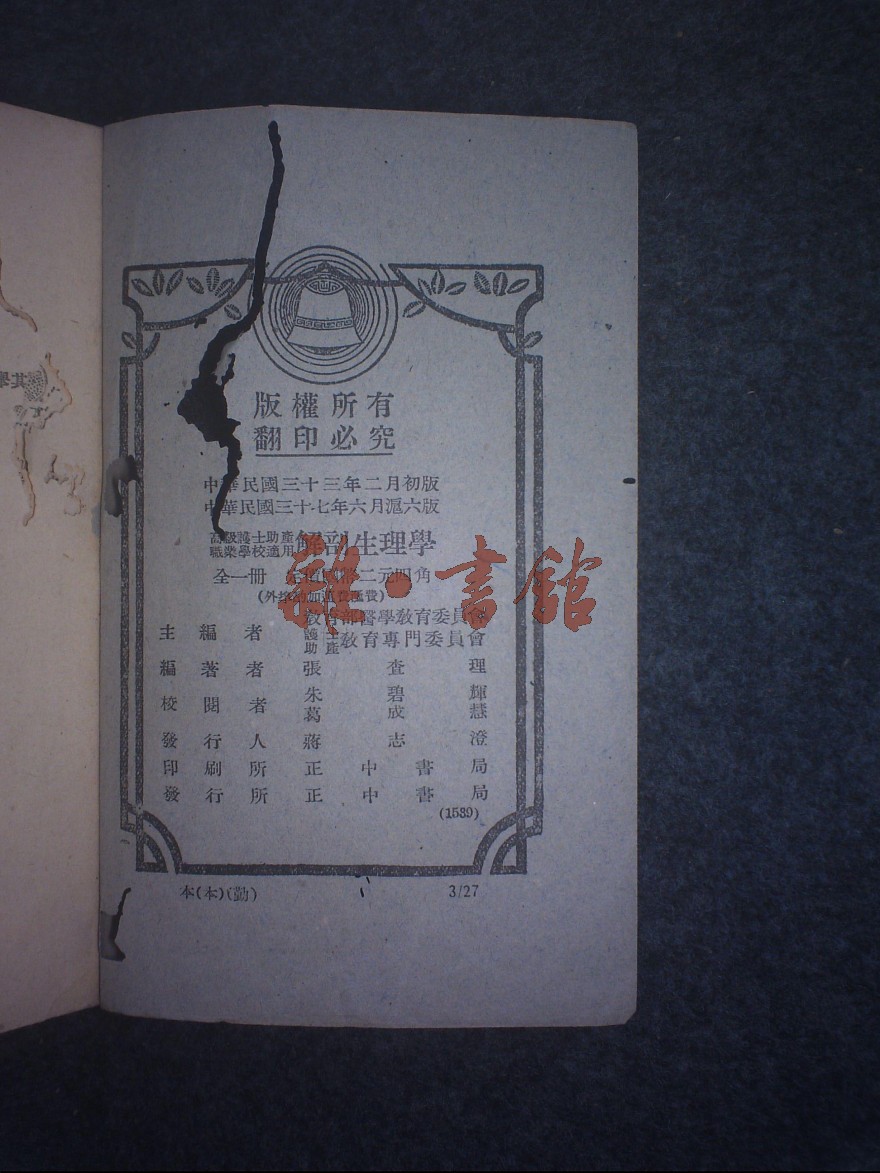 版權所有
翻印必究
中華民國三十三年二月初版
中華民國三十七年六月滬六版
高級護士助產
職業學校適用 解剖生理學
全一冊 定價國幣二元四角
(外埠酌加運費匯費)
主編者 教育部醫學教育委員會
護士助產教育專門委員會
編著者 張查理
校閱者 朱碧輝
葛成慧
發行人 蔣志澄
印刷所 正中書局
發行所 正中書局
(1589)
本(本)(勤) 3/27
雜·書館
其學